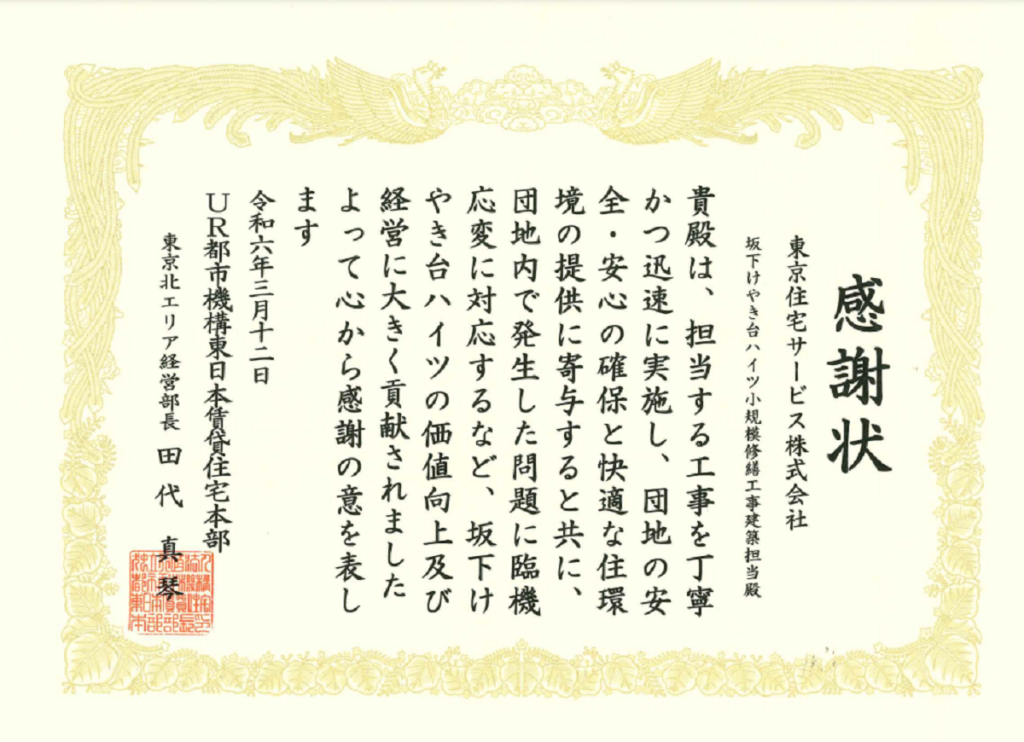 感謝状
東京住宅サービス株式会社
坂下けやき台ハイツ小規模修繕工事建築担当殿
貴殿は、担当する工事を丁寧
かつ迅速に実施し、団地の安
全・安心の確保と快適な住環
境の提供に寄与すると共に、
団地内で発生した問題に臨機
応変に対応するなど、坂下け
やき台ハイツの価値向上及び
経営に大きく貢献されました
よって心から感謝の意を表し
ます
令和六年三月十二日
UR都市機構東日本賃貸住宅本部
東京北エリア経営部長 田代 真琴